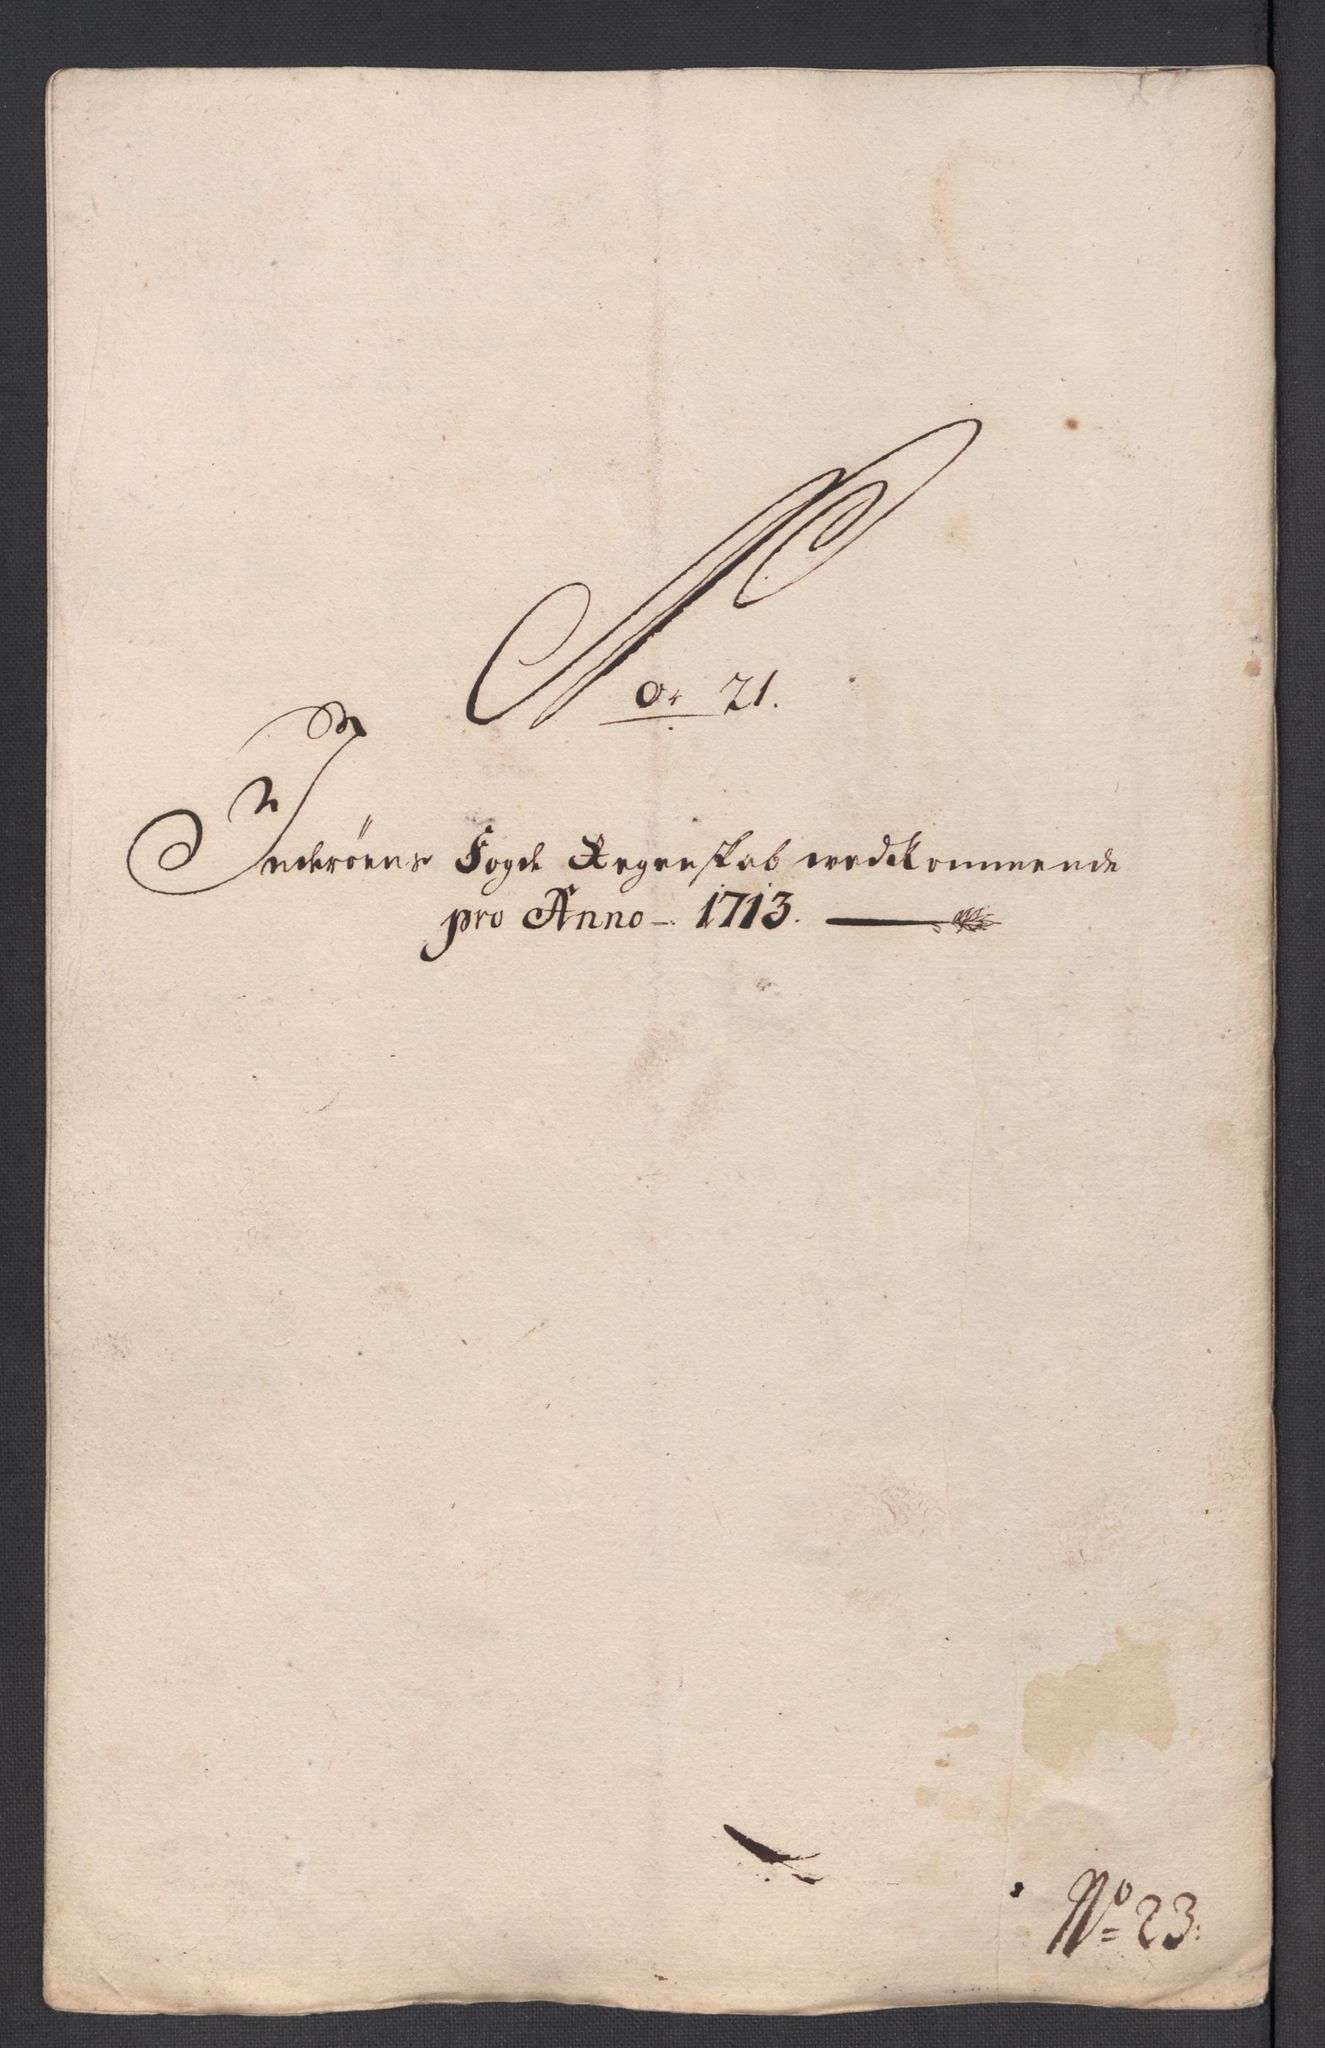 Nor 21.
Inderöens Fogde Regenskab wedkommende
pro Anno 1713.
No 23.